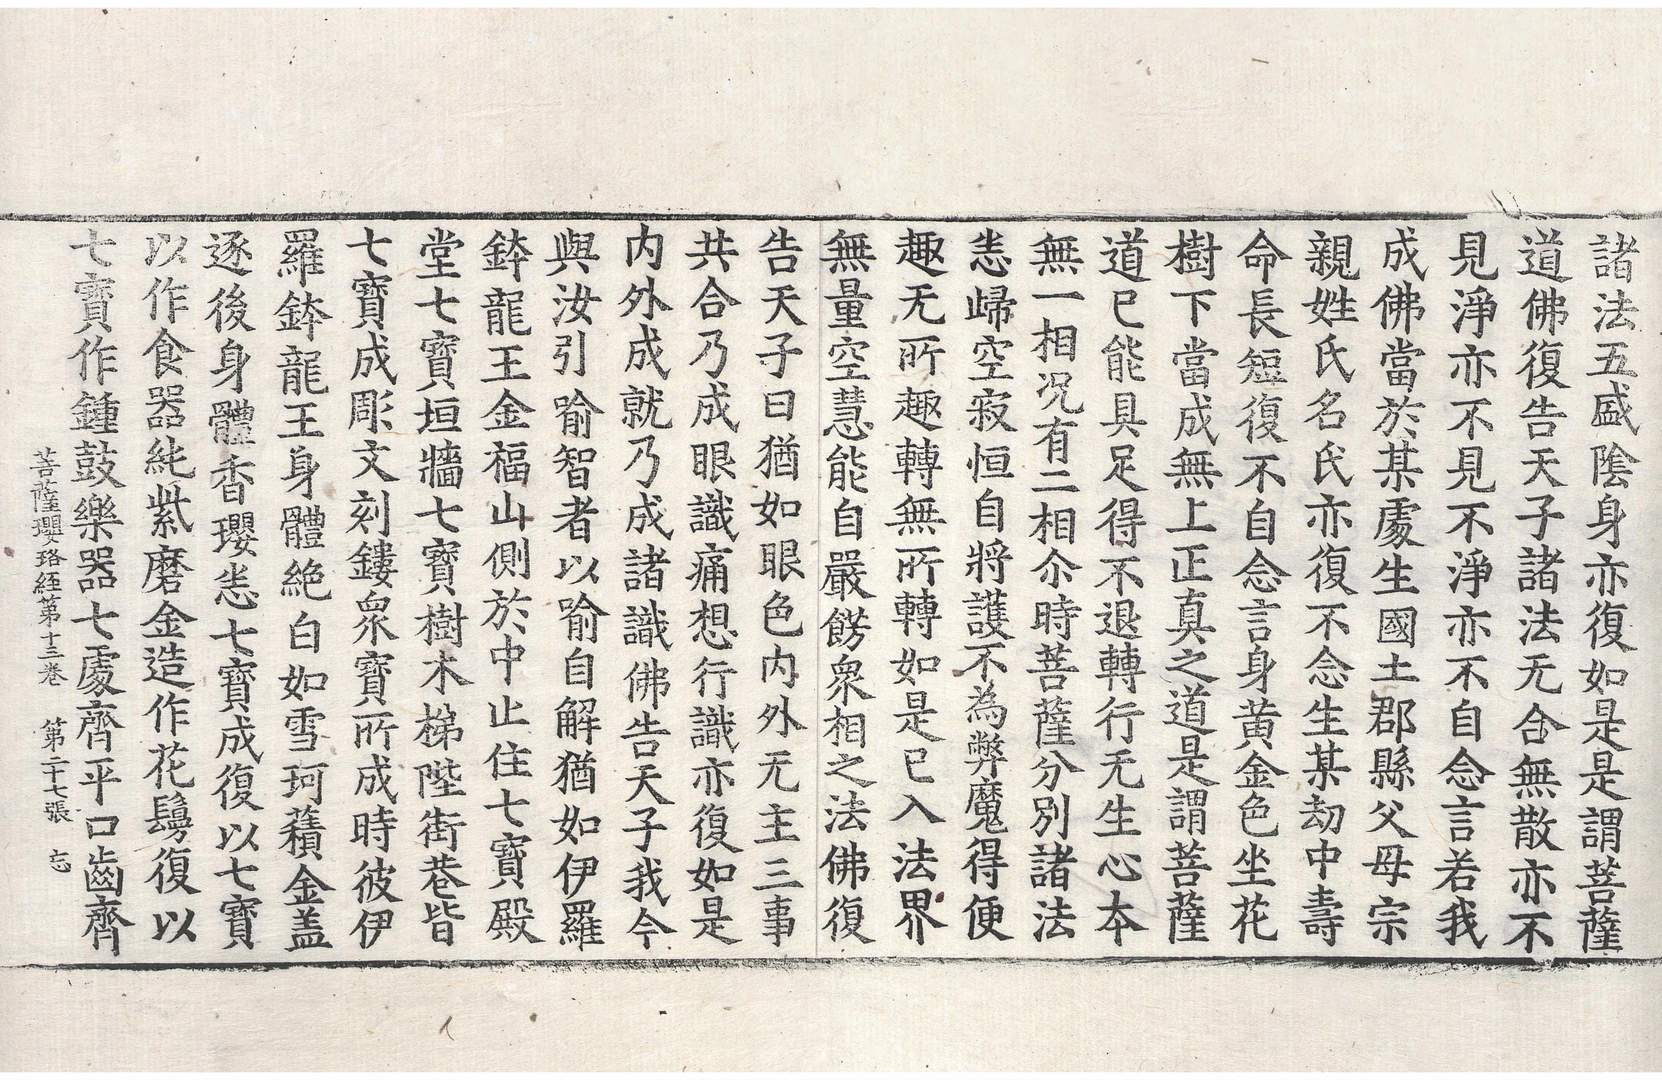 諸法五盛陰身亦復如是是謂菩薩
道佛復告天子諸法无合無散亦不
見淨亦不見不淨亦不自念言若我
成佛當於某處生國土郡縣父母宗
親姓氏名氏亦復不念生某劫中壽
命長短復不自念言身黃金色坐花
樹下當成無上正真之道是謂菩薩
道已能具足得不退轉行无生心本
無一相况有二相尒時菩薩分別諸法
恙歸空寂恒自將護不為弊魔得便
趣无所趣轉無所轉如是已入法界
無量空慧能自嚴餝衆相之法佛復
告天子曰猶如眼色内外无主三事
共合乃成眼識痛想行識亦復如是
内外成就乃成諸識佛告天子我今
與汝引喻智者以喻自解猶如伊羅
鉢龍王金福山側於中止住七寶殿
堂七寶垣牆七寶樹木梯陛街巷皆
七寶成彫文刻鏤衆寶所成時彼伊
羅鉢龍王身體絶白如雪珂積金盖
逐後身體香瓔恙七寶成復以七寶
以作食器純紫磨金造作花鬘復以
七寶作鍾鼓樂器七處齊平口齒齊
菩薩瓔珞經第十三卷 第二十七張 忘